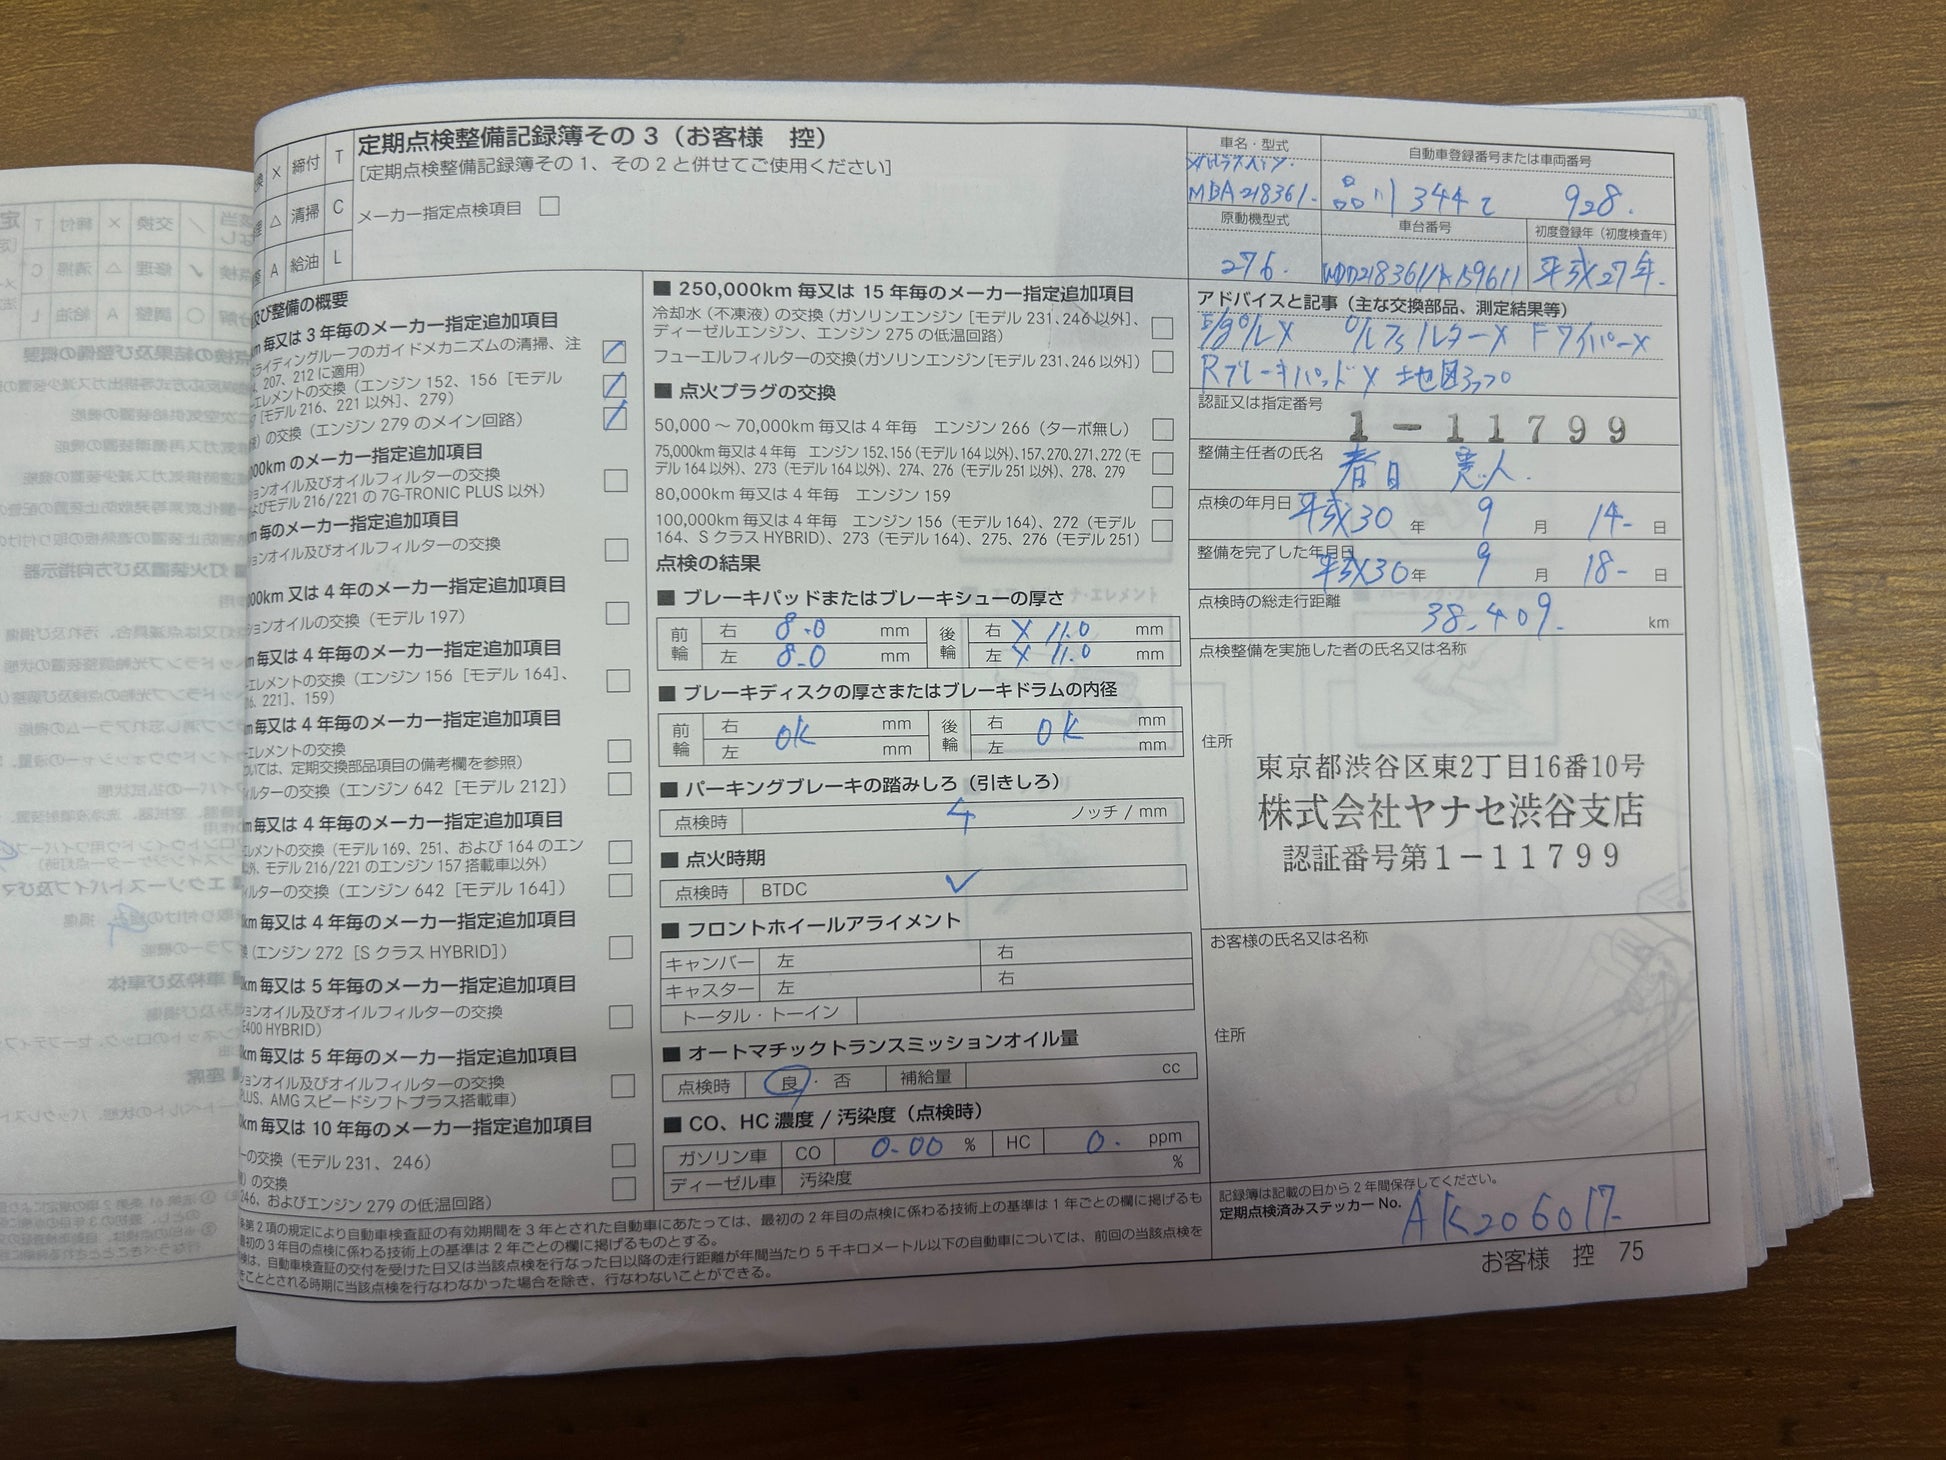 定期点検整備記録簿その3（お客様　控）
［定期点検整備記録簿その1、その2と併せてご使用ください］
メーカー指定点検項目
× 締付 T
△ 清掃 C
A 給油 L
車名・型式
MBA218361.
自動車登録番号または車両番号
品川 344 て 928.
原動機型式
276.
車台番号
初度登録年（初度検査年）
平成27年.
及び整備の概要
km 毎又は 3 年毎のメーカー指定追加項目
ライディングルーフのガイドメカニズムの清掃、注
、207、212 に適用）
エレメントの交換（エンジン 152、156［モデル
［モデル 216、221 以外］、279）
）の交換（エンジン 279 のメイン回路）
000km のメーカー指定追加項目
ョンオイル及びオイルフィルターの交換
およびモデル 216/221 の 7G-TRONIC PLUS 以外）
km 毎のメーカー指定追加項目
ョンオイル及びオイルフィルターの交換
000km 又は 4 年のメーカー指定追加項目
ションオイルの交換（モデル 197）
m 毎又は 4 年毎のメーカー指定追加項目
エレメントの交換（エンジン 156［モデル 164］、
6、221］、159）
m 毎又は 4 年毎のメーカー指定追加項目
エレメントの交換
ついては、定期交換部品項目の備考欄を参照）
ィルターの交換（エンジン 642［モデル 212］）
m 毎又は 4 年毎のメーカー指定追加項目
エレメントの交換（モデル 169、251、および 164 のエン
以外、モデル 216/221 のエンジン 157 搭載車以外）
ィルターの交換（エンジン 642［モデル 164］）
km 毎又は 4 年毎のメーカー指定追加項目
換（エンジン 272［S クラス HYBRID］）
km 毎又は 5 年毎のメーカー指定追加項目
ョンオイル及びオイルフィルターの交換
E400 HYBRID）
km 毎又は 5 年毎のメーカー指定追加項目
ションオイル及びオイルフィルターの交換
PLUS、AMG スピードシフトプラス搭載車）
km 毎又は 10 年毎のメーカー指定追加項目
ーの交換（モデル 231、246）
）の交換
246、およびエンジン 279 の低温回路）
■ 250,000km 毎又は 15 年毎のメーカー指定追加項目
冷却水（不凍液）の交換（ガソリンエンジン［モデル 231、246 以外］、
ディーゼルエンジン、エンジン 275 の低温回路）
フューエルフィルターの交換（ガソリンエンジン［モデル 231、246 以外］）
■ 点火プラグの交換
50,000 ～ 70,000km 毎又は 4 年毎　エンジン 266（ターボ無し）
75,000km 毎又は 4 年毎　エンジン 152、156（モデル 164 以外）、157、270、271、272（モ
デル 164 以外）、273（モデル 164 以外）、274、276（モデル 251 以外）、278、279
80,000km 毎又は 4 年毎　エンジン 159
100,000km 毎又は 4 年毎　エンジン 156（モデル 164）、272（モデル
164、S クラス HYBRID）、273（モデル 164）、275、276（モデル 251）
点検の結果
■ ブレーキパッドまたはブレーキシューの厚さ
前輪 右 8.0 mm 後輪 右 × 11.0 mm
左 8.0 mm 左 × 11.0 mm
■ ブレーキディスクの厚さまたはブレーキドラムの内径
前輪 右 mm 後輪 右 mm
左 OK mm 左 OK mm
■ パーキングブレーキの踏みしろ（引きしろ）
点検時 4 ノッチ / mm
■ 点火時期
点検時 BTDC ✓
■ フロントホイールアライメント
キャンバー 左 右
キャスター 左 右
トータル・トーイン
■ オートマチックトランスミッションオイル量
点検時 良・否 補給量 cc
■ CO、HC 濃度 / 汚染度（点検時）
ガソリン車 CO 0.00 % HC 0. ppm
ディーゼル車 汚染度 %
アドバイスと記事（主な交換部品、測定結果等）
E/gO/L× O/Lフィルター× Fワイパー×
Rブレーキパッド×
認証又は指定番号
1－11799
整備主任者の氏名
春日
点検の年月日 平成30 年 9 月 14 日
整備を完了した年月日 平成30 年 9 月 18 日
点検時の総走行距離 38,409. km
点検整備を実施した者の氏名又は名称
住所
東京都渋谷区東2丁目16番10号
株式会社ヤナセ渋谷支店
認証番号第1－11799
お客様の氏名又は名称
住所
条第 2 項の規定により自動車検査証の有効期間を 3 年とされた自動車にあたっては、最初の 2 年目の点検に係わる技術上の基準は 1 年ごとの欄に掲げるも
最初の 3 年目の点検に係わる技術上の基準は 2 年ごとの欄に掲げるものとする。
検は、自動車検査証の交付を受けた日又は当該点検を行なった日以降の走行距離が年間当たり 5 千キロメートル以下の自動車については、前回の当該点検を
きこととされる時期に当該点検を行なわなかった場合を除き、行なわないことができる。
記録簿は記載の日から 2 年間保存してください。
定期点検済みステッカー No. AK206017
お客様　控　75